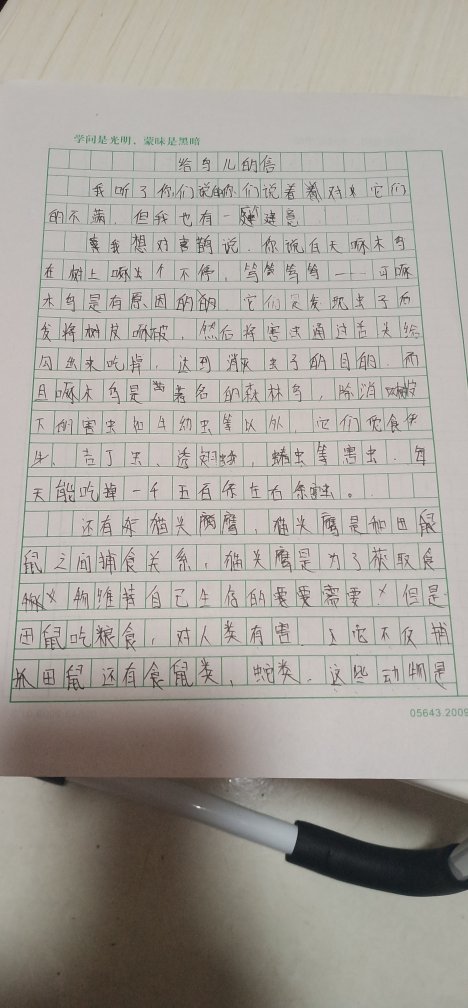 学问是光明，蒙昧是黑暗
给鸟儿的信
我听了你们说的你们说着着对它们
的不满，但我也有一建意
喜我想对喜鹊说，你说白天啄木鸟
在树上啄出个不停，笃笃笃笃……可啄
木鸟是有原因的，它们是发现虫子后
发将树皮啄破，然后将害虫通过舌头给
勾出来吃掉，达到消灭虫子的目的，而
且啄木鸟是著名的森林鸟，除消树皮
下的害虫如牛幼虫等以外，它们便食伊
牛、吉丁虫、透翅蛾，蝽虫等害虫，每
天能吃掉一千五百条左右条害虫。
还有猫头鹰，猫头鹰是和田鼠
鼠之间捕食关系，猫头鹰是为了获取食
物维持自己生存的要要需要，但是
田鼠吃粮食，对人类有害，它不仅捕
抓田鼠还有食鼠类，蛇类，这些动物是
05643.2009